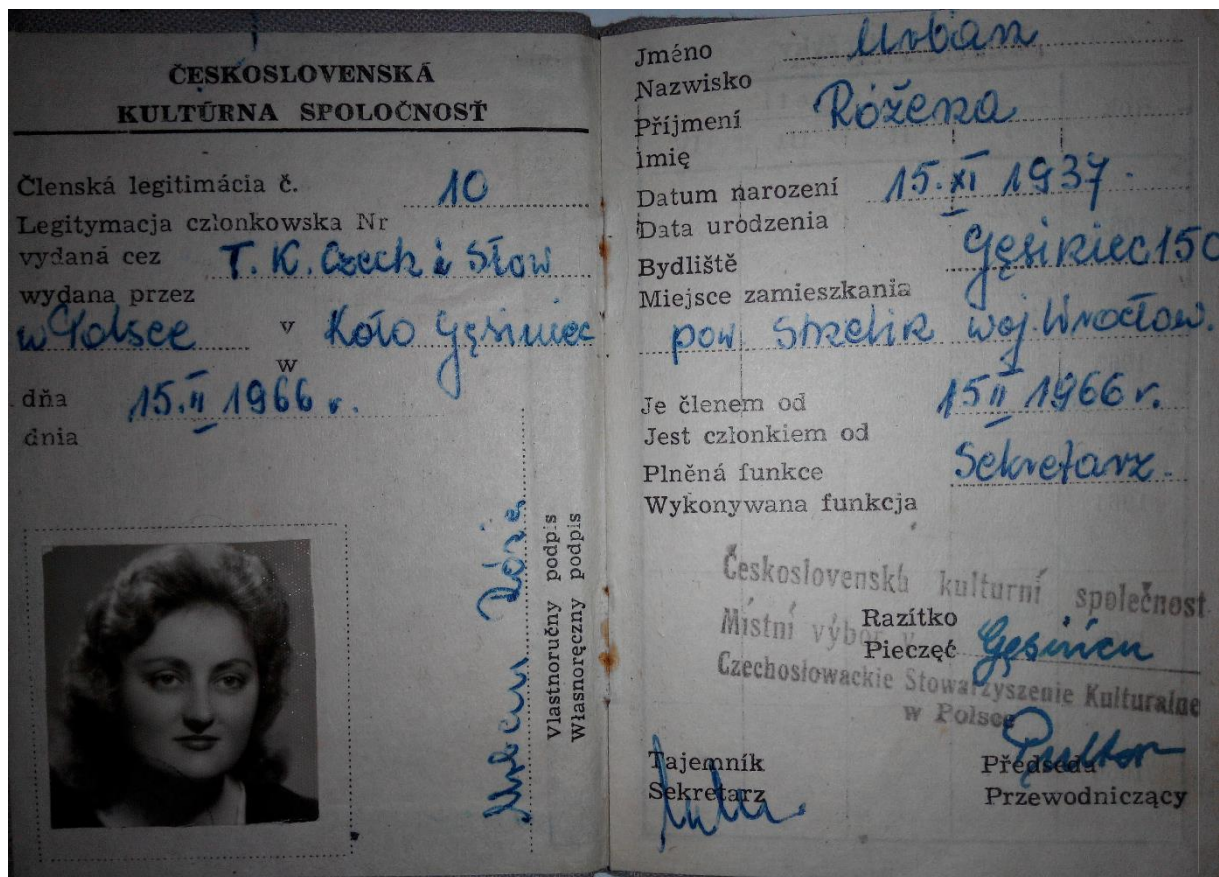 ČESKOSLOVENSKÁ
KULTÚRNA SPOLOČNOSŤ
Členská legitimácia č. 10
Legitymacja członkowska Nr
vydaná cez T. K. Czech i Słow
wydana przez
w Polsce v Koło Gęsiniec
w
dňa 15.II 1966 r.
dnia
Vlastnoručny podpis
Własnoręczny podpis
Urban
Jméno Urban
Nazwisko
Příjmení Róžena
Imię
Datum narození 15.XI 1937.
Data urodzenia
Bydliště Gęsiniec 150
Miejsce zamieszkania
pow. Strzelin woj. Wrocław.
Je členem od 15 II 1966 r.
Jest członkiem od
Plněná funkce Sekretarz.
Wykonywana funkcja
Československá kulturní společnost
Místní výbor v
Razítko
Pieczęć Gęsińcu
Czechosłowackie Stowarzyszenie Kulturalne
w Polsce
Tajemník Předseda
Sekretarz Przewodniczący